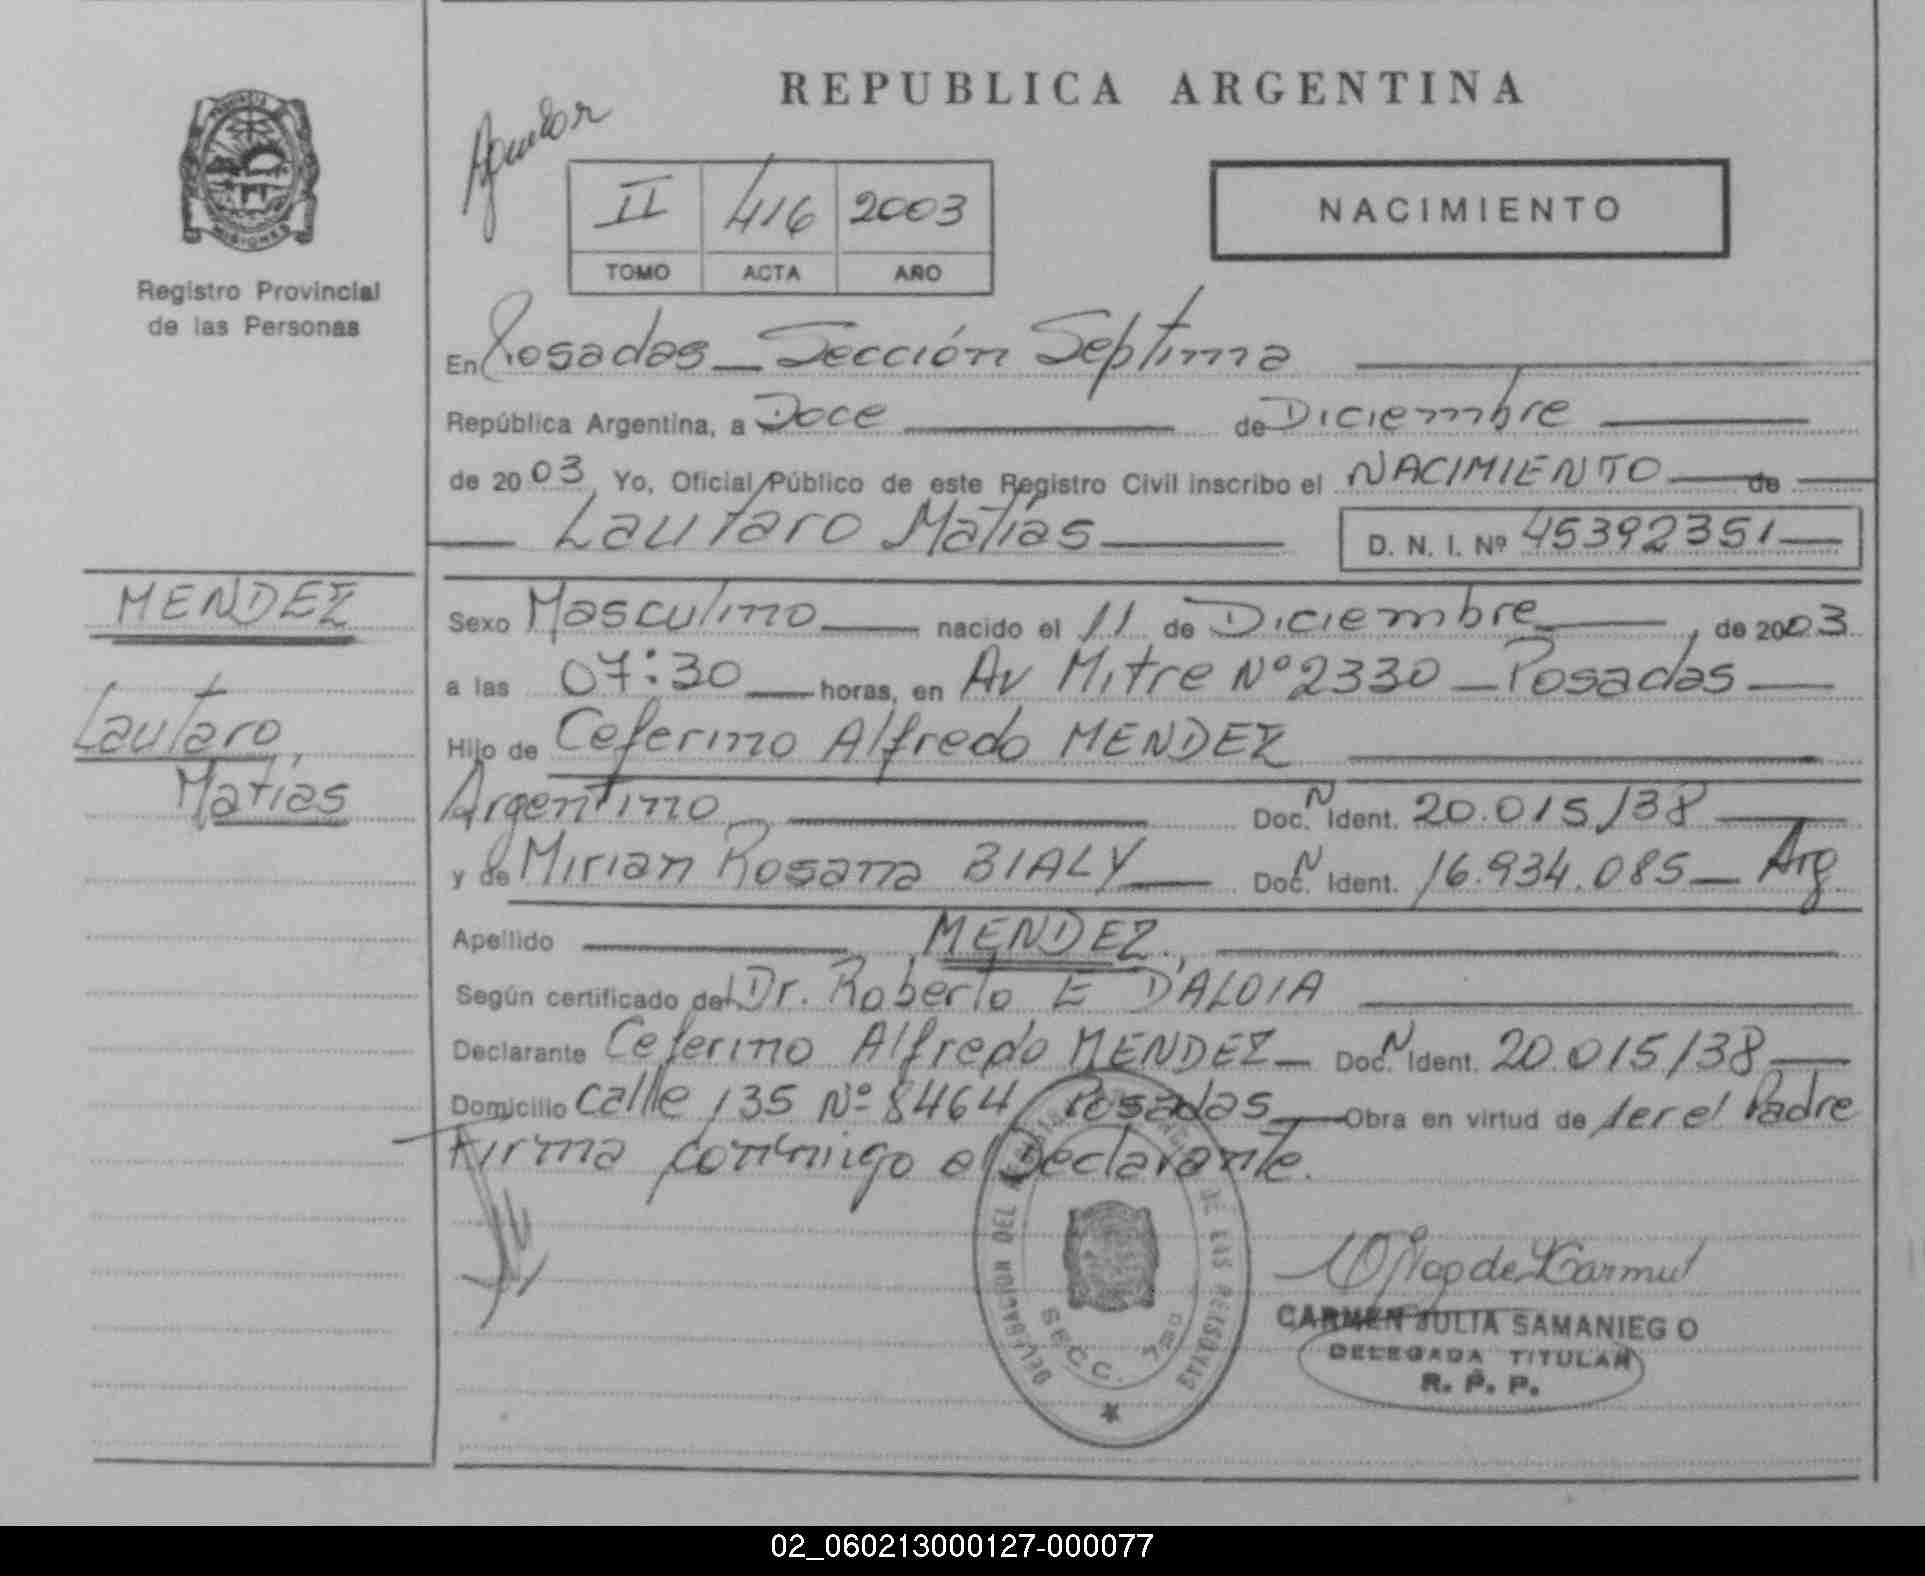 REPUBLICA ARGENTINA
II 416 2003
TOMO ACTA AÑO
NACIMIENTO
MISIONES
Registro Provincial
de las Personas
En Posadas - Sección Septima
República Argentina, a Doce de Diciembre
de 2003 Yo, Oficial Público de este Registro Civil inscribo el NACIMIENTO de
Lautaro Matías D. N. I. Nº 45392351
MENDEZ
Lautaro
Matías
Sexo Masculino nacido el 11 de Diciembre, de 2003
a las 07:30 horas, en Av Mitre Nº 2330 - Posadas
Hijo de Ceferino Alfredo MENDEZ
Argentino Doc. N Ident. 20.015138
y de Mirian Rosana BIALY Doc. N Ident. 16.934.085 - Arg
Apellido MENDEZ
Según certificado del Dr. Roberto E D'ALOIA
Declarante Ceferino Alfredo MENDEZ - Doc. N Ident. 20.015138
Domicilio calle 135 Nº 8464 Posadas Obra en virtud de ser el Padre
Firma conmigo el Declarante.
DELEGACION DEL DE LAS PERSONAS
SECC. 7ma
CARMEN JULIA SAMANIEGO
DELEGADA TITULAR
R. P. P.
02_060213000127-000077